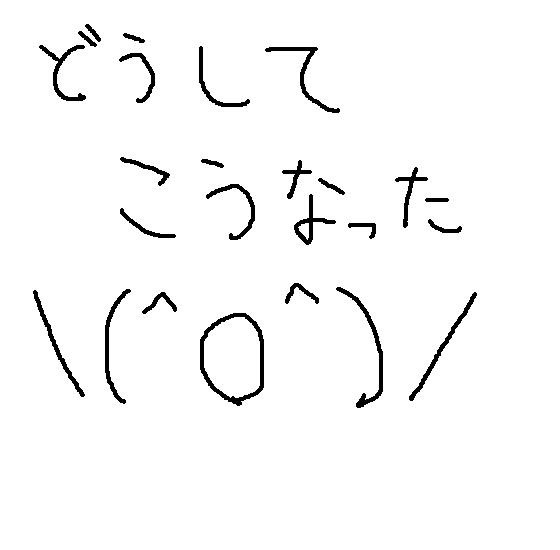 どうして
こうなった
\(^O^)/